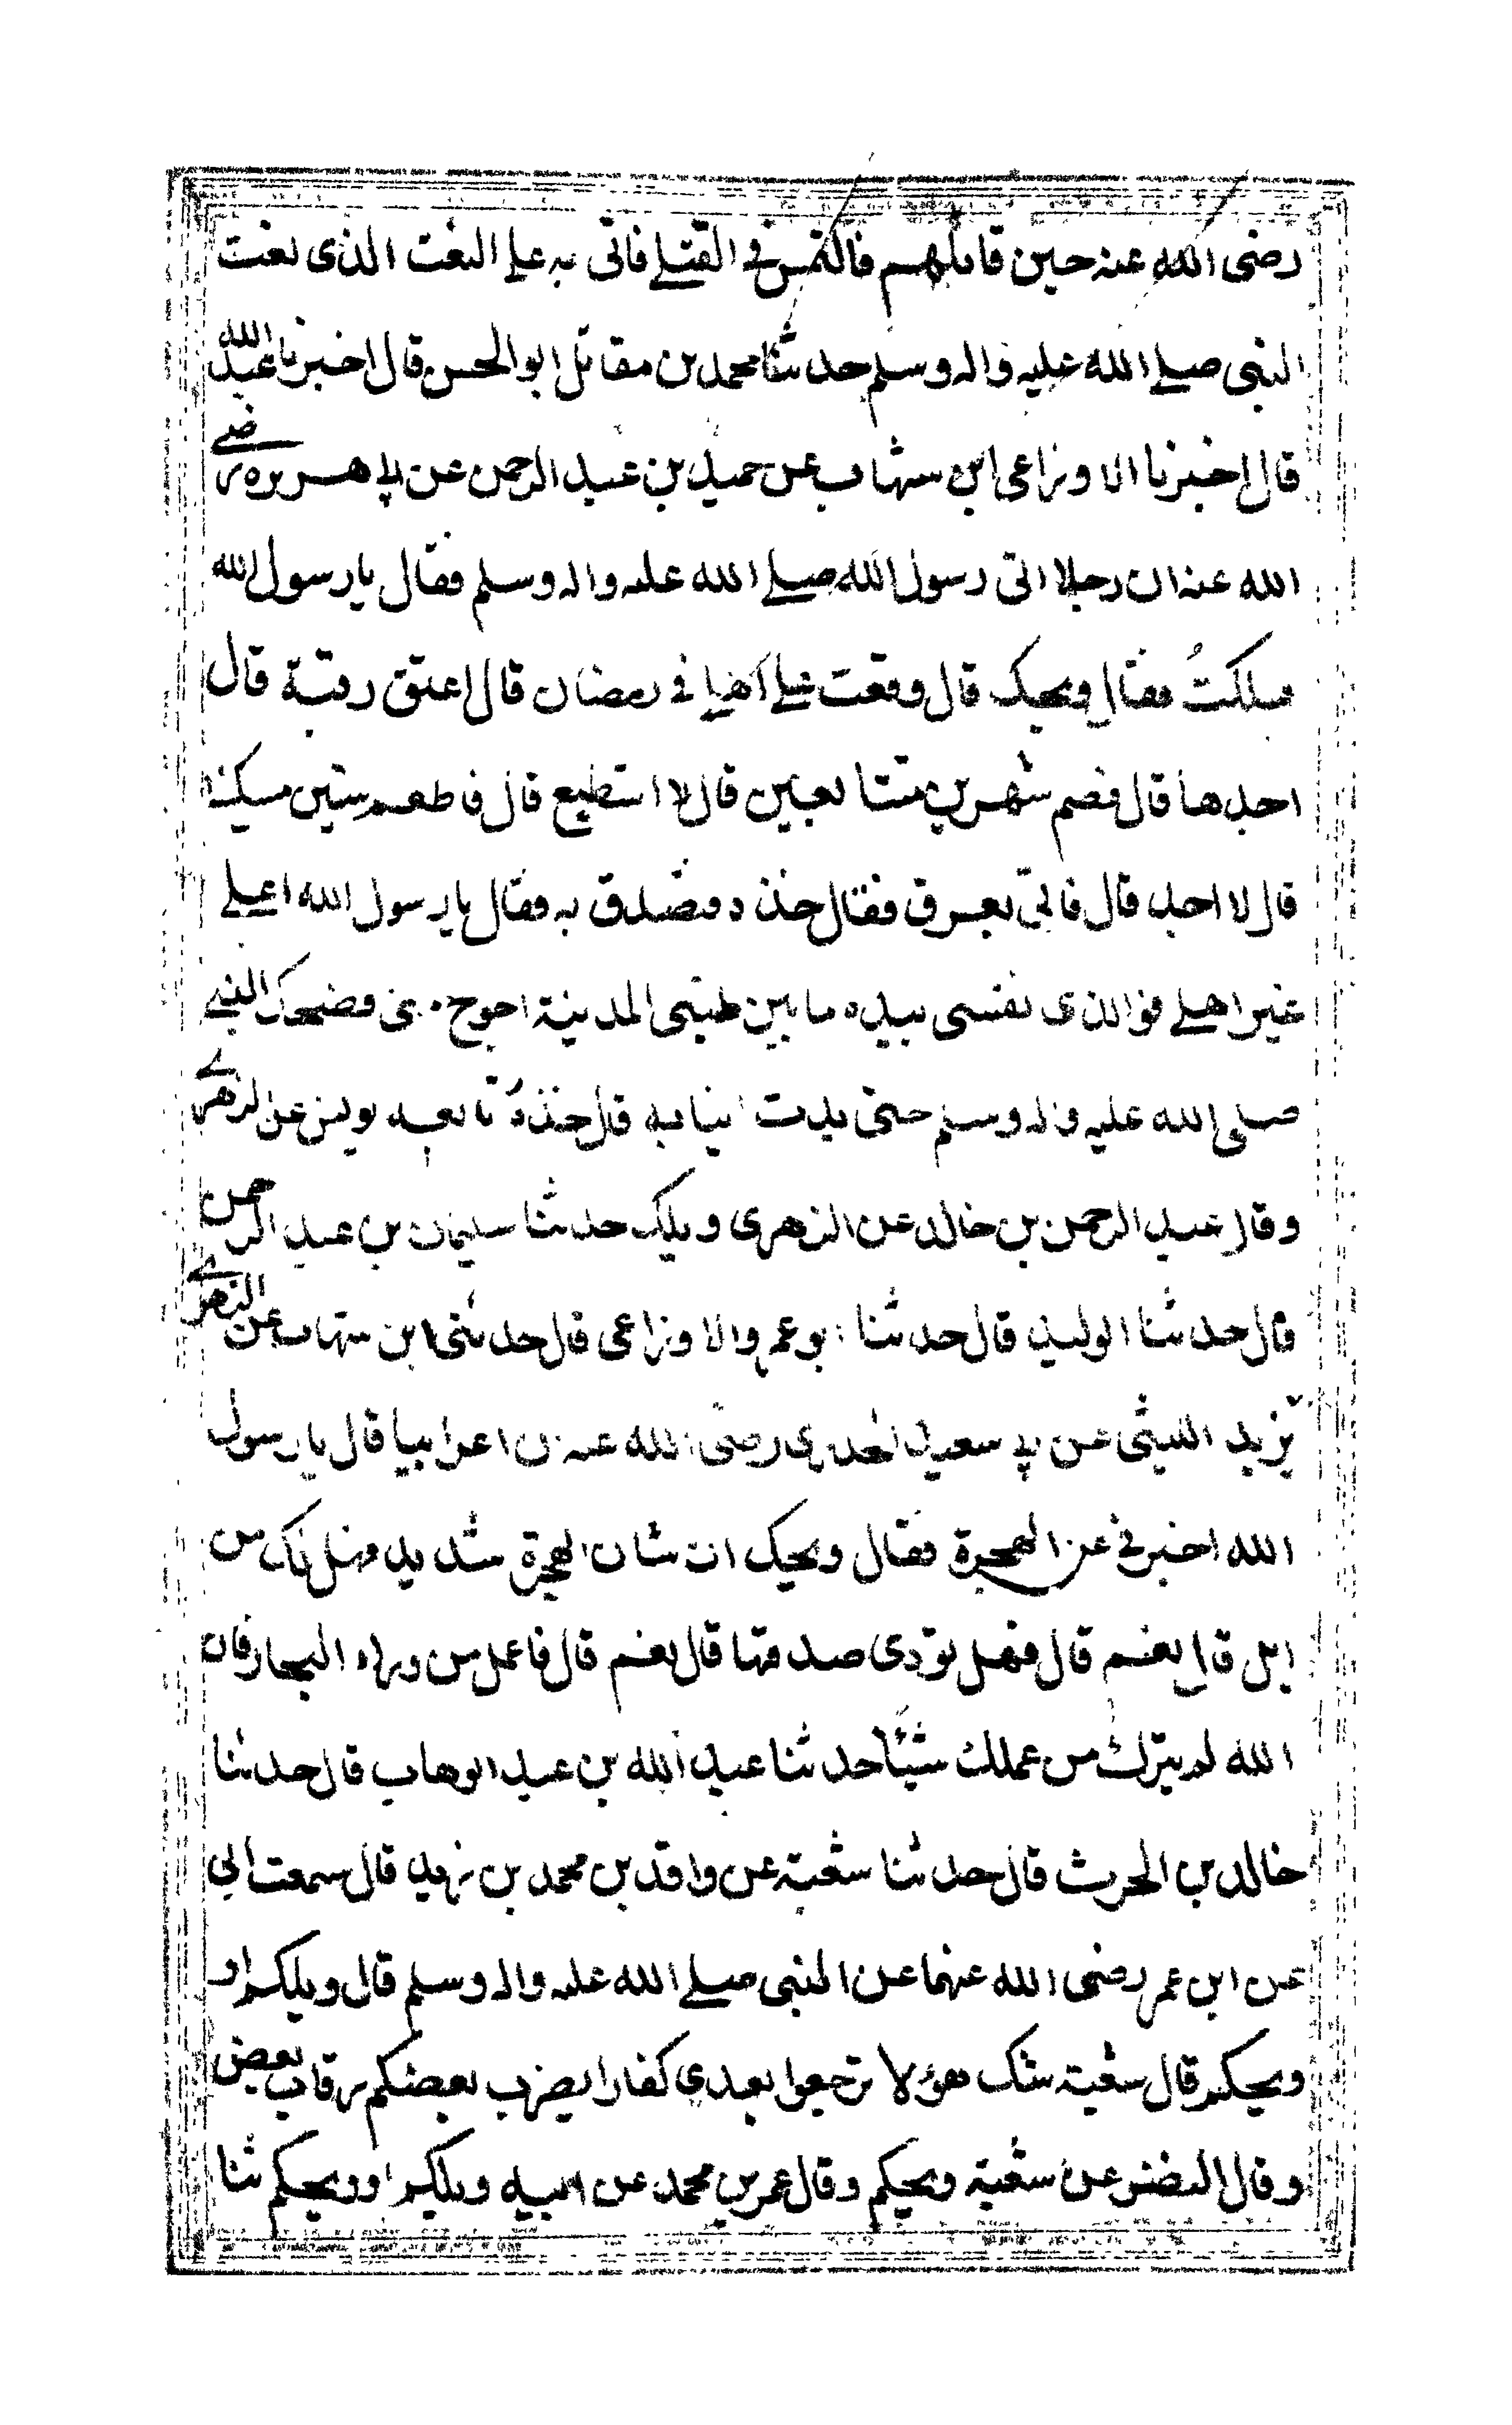 رضى الله عنه حين قاتلهم فالتمس فى القتلى فاتى به على النعت الذى نعت
النبى صلى الله عليه واله وسلم حدثنا محمد بن مقاتل ابو الحسن قال اخبرنا عبد الله
قال اخبرنا الاوزاعى ابن شهاب عن حميد بن عبد الرحمن عن ابى هريره رضى
الله عنه ان رجلا اتى رسول الله صلى الله عليه واله وسلم فقال يا رسول الله
هلكتُ فقال ويحك قال وقعت على اهلى فى رمضان قال اعتق رقبة قال
اجدها قال فصم شهرين متتابعين قال لا استطيع قال فاطعم ستين مسكينا
قال لا اجد قال فاتى بعرق فقال خذه فتصدق به فقال يا رسول الله اعلى
غير اهلى فوالذى نفسى بيده ما بين طنبى المدينة احوج منى فضحك النبى
صلى الله عليه واله وسلم حتى بدت انيابه قال خذهُ تابعه يونس عن الزهرى
وقال عبد الرحمن بن خالد عن الزهرى ويلك حدثنا سليمان بن عبد الرحمن
قال حدثنا الوليد قال حدثنا ابو عمرو الاوزاعى قال حدثنى ابن شهاب الزهرى عن
يزيد الليثى عن ابى سعيد الخدرى رضى الله عنه ان اعرابيا قال يا رسول
الله اخبرنى عن الهجرة فقال ويحك ان شان الهجرة شديد فهل لك من
ابل قال نعم قال فهل تؤدى صدقتها قال نعم قال فاعمل من وراء البحار فان
الله لم يترك من عملك شيئا حدثنا عبد الله بن عبد الوهاب قال حدثنا
خالد بن الحرث قال حدثنا شعبة عن واقد بن محمد بن زيد قال سمعت ابى
عن ابن عمر رضى الله عنهما عن النبى صلى الله عليه واله وسلم قال ويلكم او
ويحكم قال شعبة شك هو لا ترجعوا بعدى كفارا يضرب بعضكم رقاب بعض
وقال النضر عن شعبة ويحكم وقال عمر بن محمد عن ابيه ويلكم او ويحكم ثنا